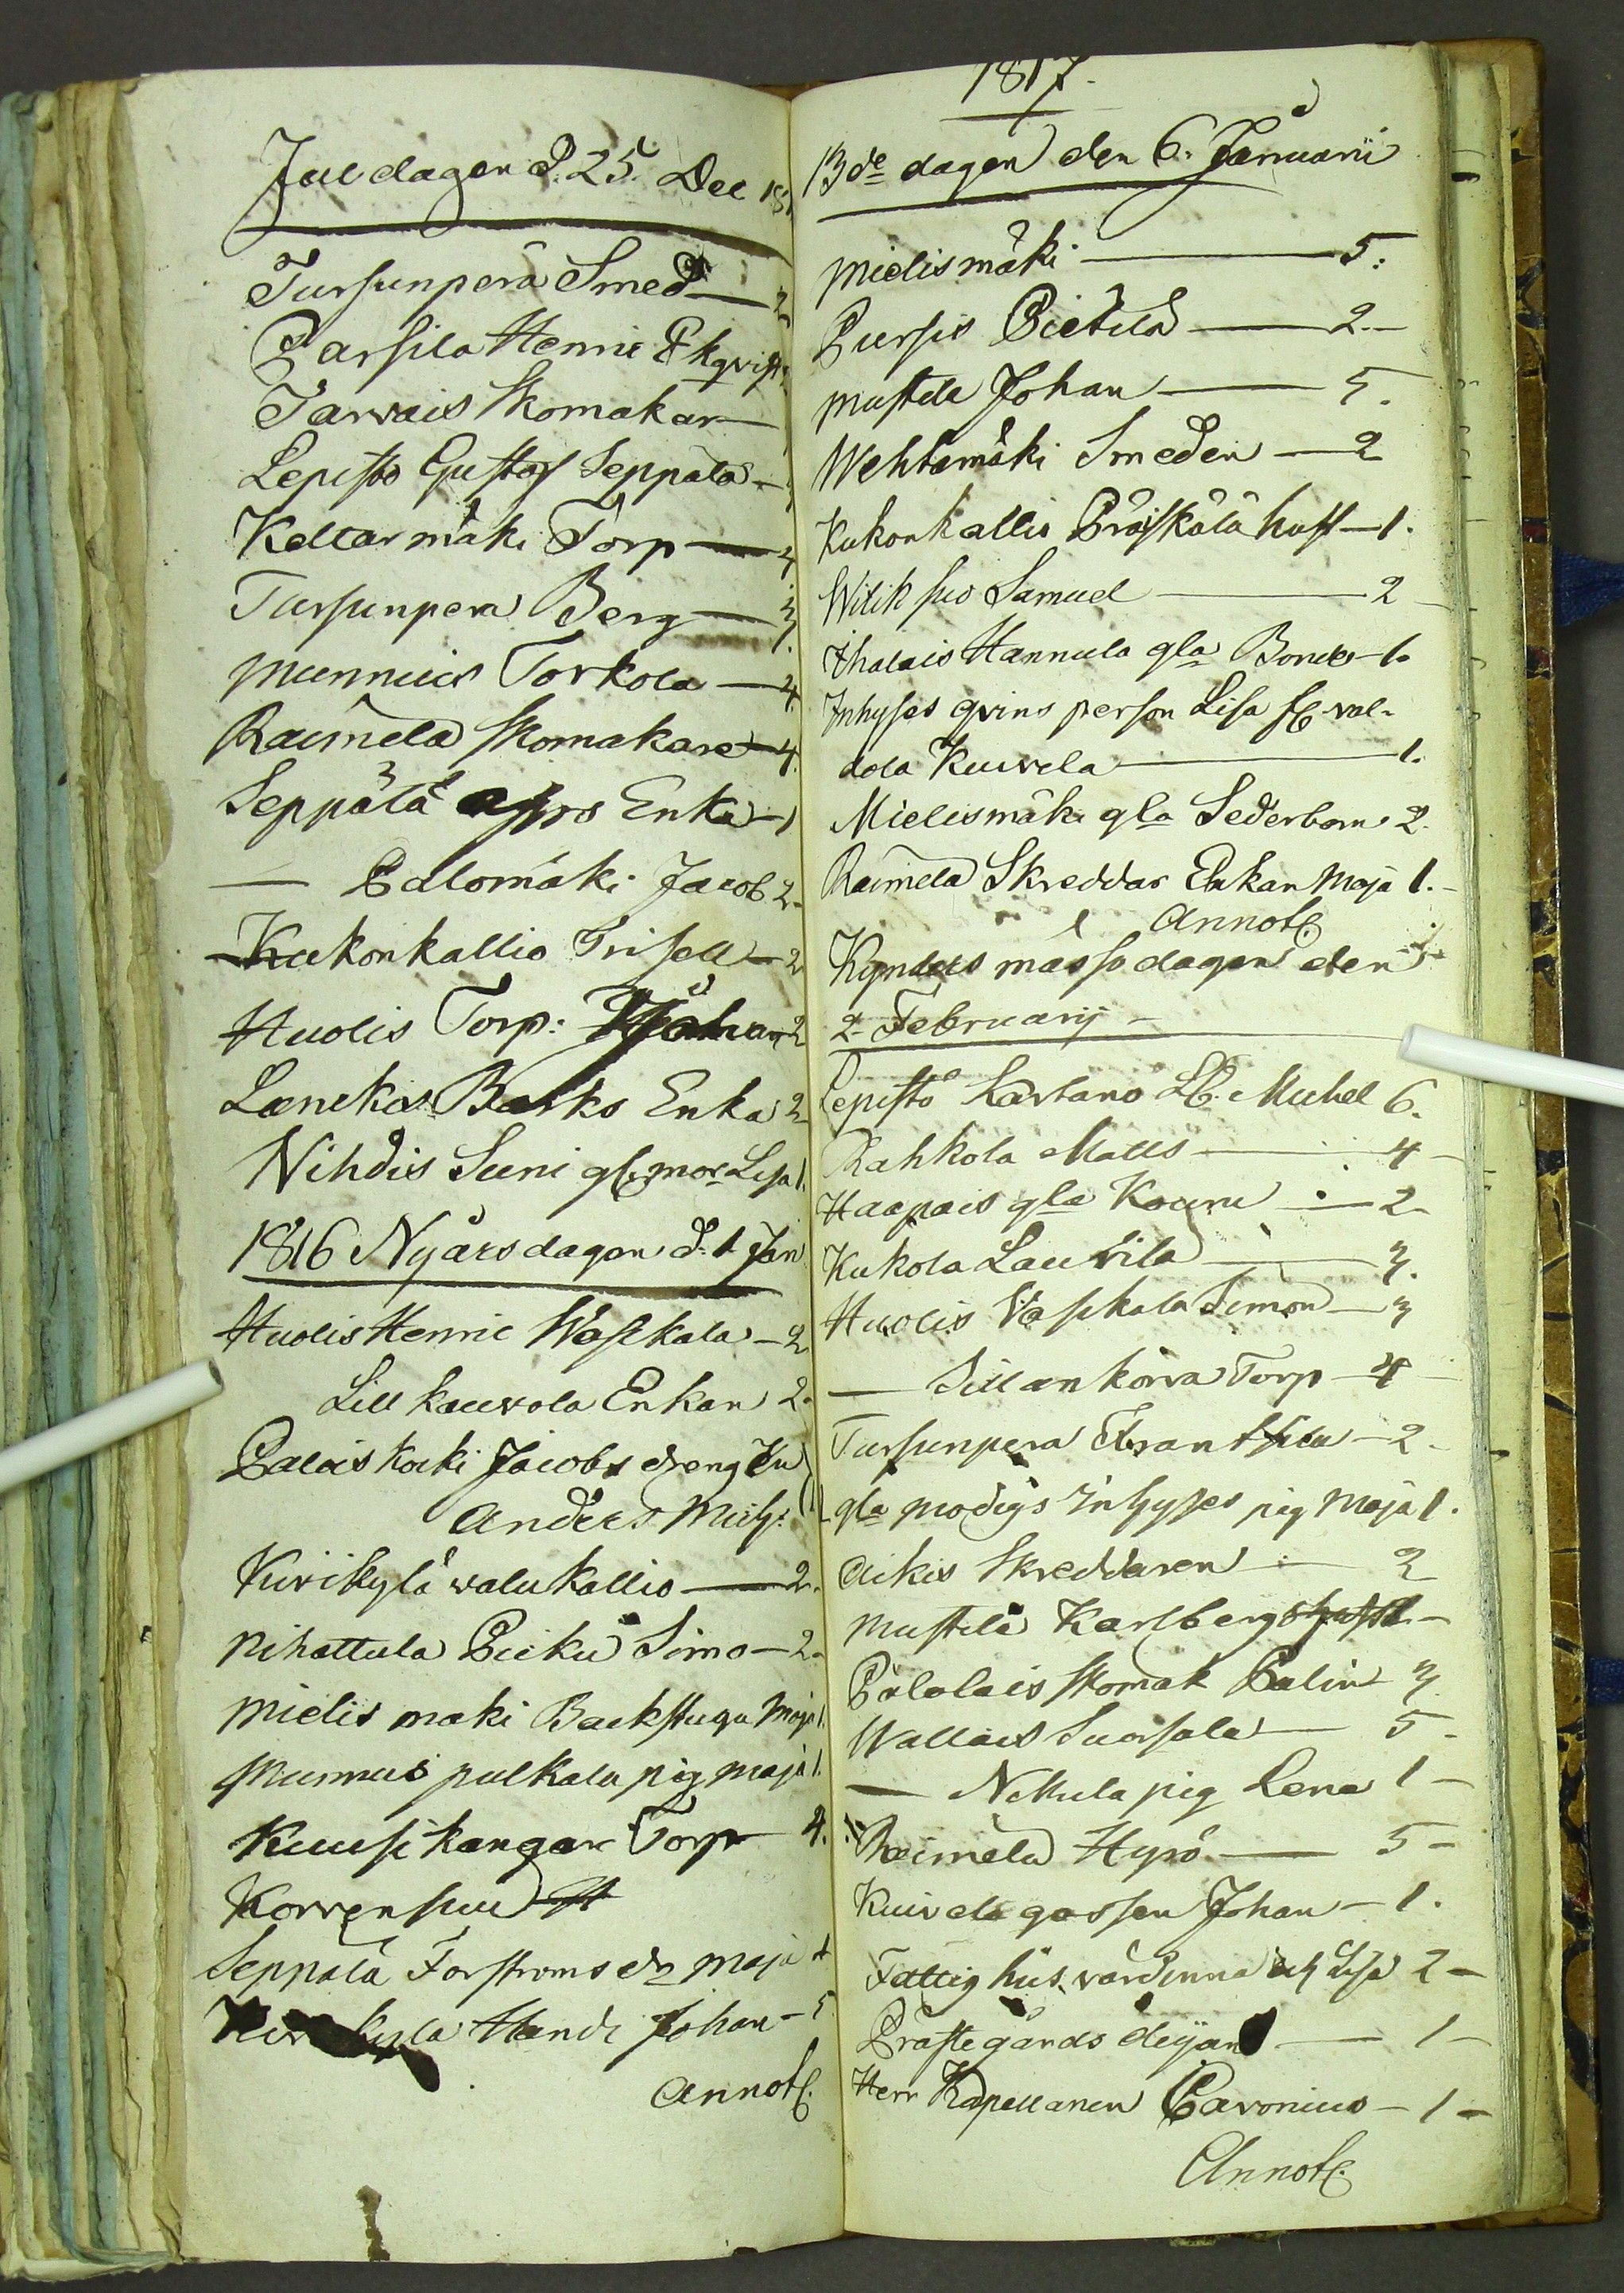 Juldagen d. 25. Dec 181
Tursunperä Smed — 2
Parsila Henric Ekqvist
Tarvais Skomakar
Lepistö Gustaf Seppälä —
Keltarmäki Torp — 4
Tursunpera Berg — 3.
Munnuis Torkola — 4
Raimela Skomakare — 4.
Seppälä Enka — 1
— Palomäki Jacob 2.
Kukonkallio Trisell — 2
Huolis Torp: 2
Laneka Barks Enka 2
Nihdis Suni gl. mor Lisa 1.
1816 Nyårsdagen d. 1 Jan
Huolis Henric Waskala — 2
Lill kauvola Enkan 2.
Palais koki Jacobs dreng
Anders Math:
Kirikylä walukallio — 2.
Nihattula Pieku Simo — 2.
Mielismaki Backstugu Maja 1.
Munnuis pulkala pig Maja 1.
Kuusikangar Torp 4.
Korvensuu
Seppälä Forstroms Maja 1
Handi Johan — 5
Annotl.
1817.
13de dagen den 6. Januarii
Mielismäki — 5.
Pursis Pietilä — 2. —
Mustela Johan — 5.
Wehtamäki Smeden — 2
Kukonkallio Präskälä hust — 1.
Witiksuo Samuel — 2
Ihalais Hannula gla Bonde 1.
Inhyses qvins person Lisa f. val-
dola Kuivela — 1.
Mielismäki gla Sederbom 2.
Raimela Skreddar Enkan Maja 1. —
Annotl.
Kynders mässo dagen den
2. Februarij —
Lepistö Kartano Lb. Michel 6.
Rahkola Matts — 4 —
Haapais gla Kouru — 2 —
Kukola Lauvila — 3.
Huolis Waskala Simon — 3
— Sillankorva Torp — 4 —
Tursunpera Frantsila — 2 —
gla Modigs inhyses pig Maja 1.
Aikis Skreddaren — 2
Mustela Karlbergs
Pälolais Skomak Palin — 3
Wallais Suorsala — 5 —
— Nikula pig Lena 1 —
Raimela Hyrö — 5 —
Kuivela gossen Johan — 1.
Fattighus vårdinna och Lisa 2 —
Prästegårds deijan — 1 —
Herr Kapellanen Cavonius — 1 —
Annotl.